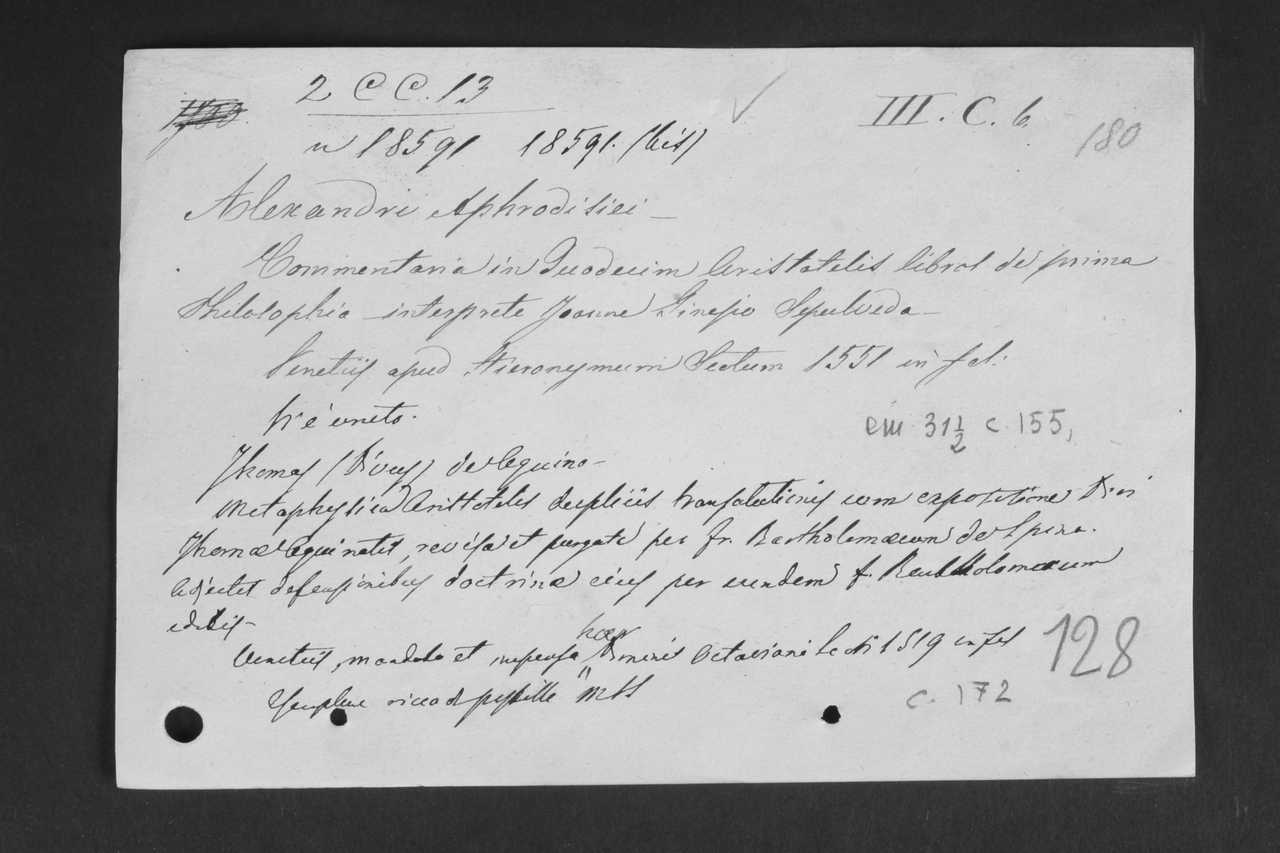 2 C C. 13
III. C. 6.
180
n 18591 18591. (bis)
Alexandri Aphrodisiei —
Commentaria in Duodecim Aristotelis libros de prima
Philosophia interprete Joanne Ginesio Sepulveda —
Venetiis apud Hieronymum Scotum 1551 in fol:
Vi è unito.
cm 31 1/2 c. 155,
Thomas (Divus) de Aquino —
Metaphysica Aristotelis duplicis translationis cum expositione Divi
Thomæ Aquinatis, revisa et purgata per fr. Bartholomæum de Spina.
Adjectis defensionibus doctrinæ eius per eundem f. Bartholomæum
editis —
hær
Venetiis, mandato et impensa Domini Octaviani Scoti 1519 in fol
128
ricco di postille MSS
c. 172